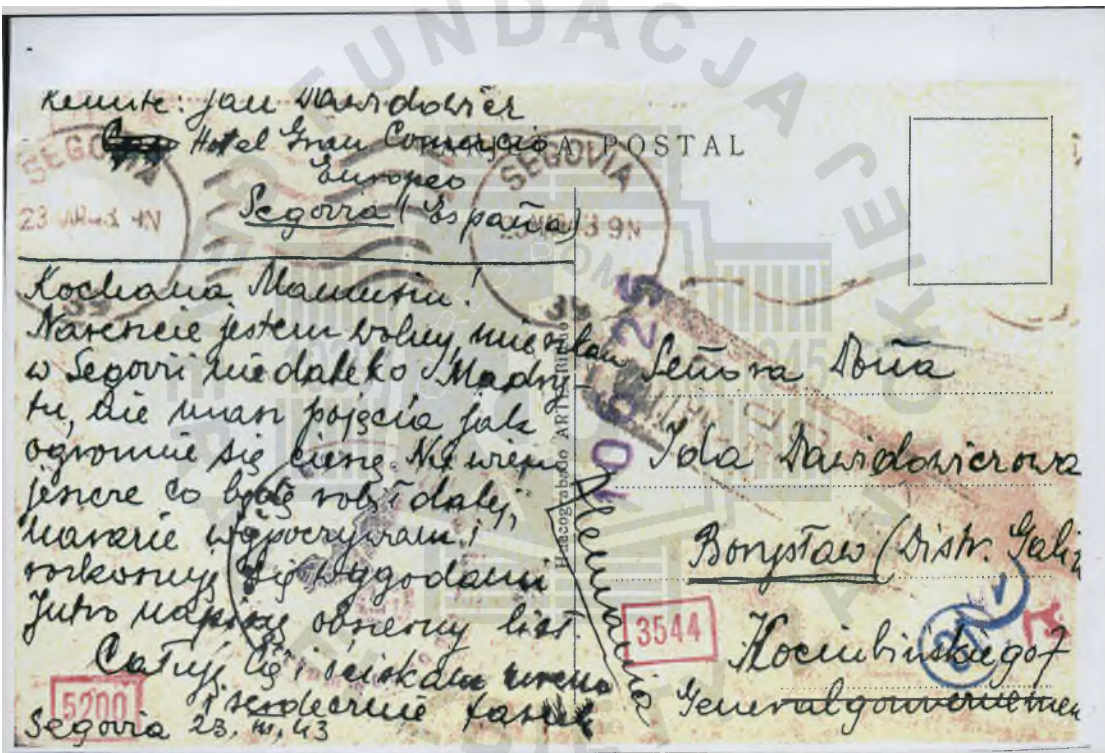 Remite: Jan Dawidowicz
Hotel Gran Comercio
Europeo
Segovia (España)
TARJETA POSTAL
SEGOVIA
SEGOVIA
23 MAR 43 9N
23 MAR 43 9N
39
39
Kochana Mamusiu!
Nareszcie jestem wolny, mieszkam
w Segovii niedaleko Madry-
tu, nie masz pojęcia jak
ogromnie się cieszę. Nie wiem
jeszcze co będę robił dalej,
narazie wypoczywam i
rozkoszuję się wygodami
Jutro napiszę obszerny list
Całuję Cię i ściskam mocno
i serdecznie
Segovia 23. III. 43
5200
Huecograbado ARTE
10625
Alemania
Señora Doña
Ida Dawidowiczowa
Borysław (Distr. Galiz
Kociubińskiego 7
Generalgouvernemen
3544
FUNDACJA
1945